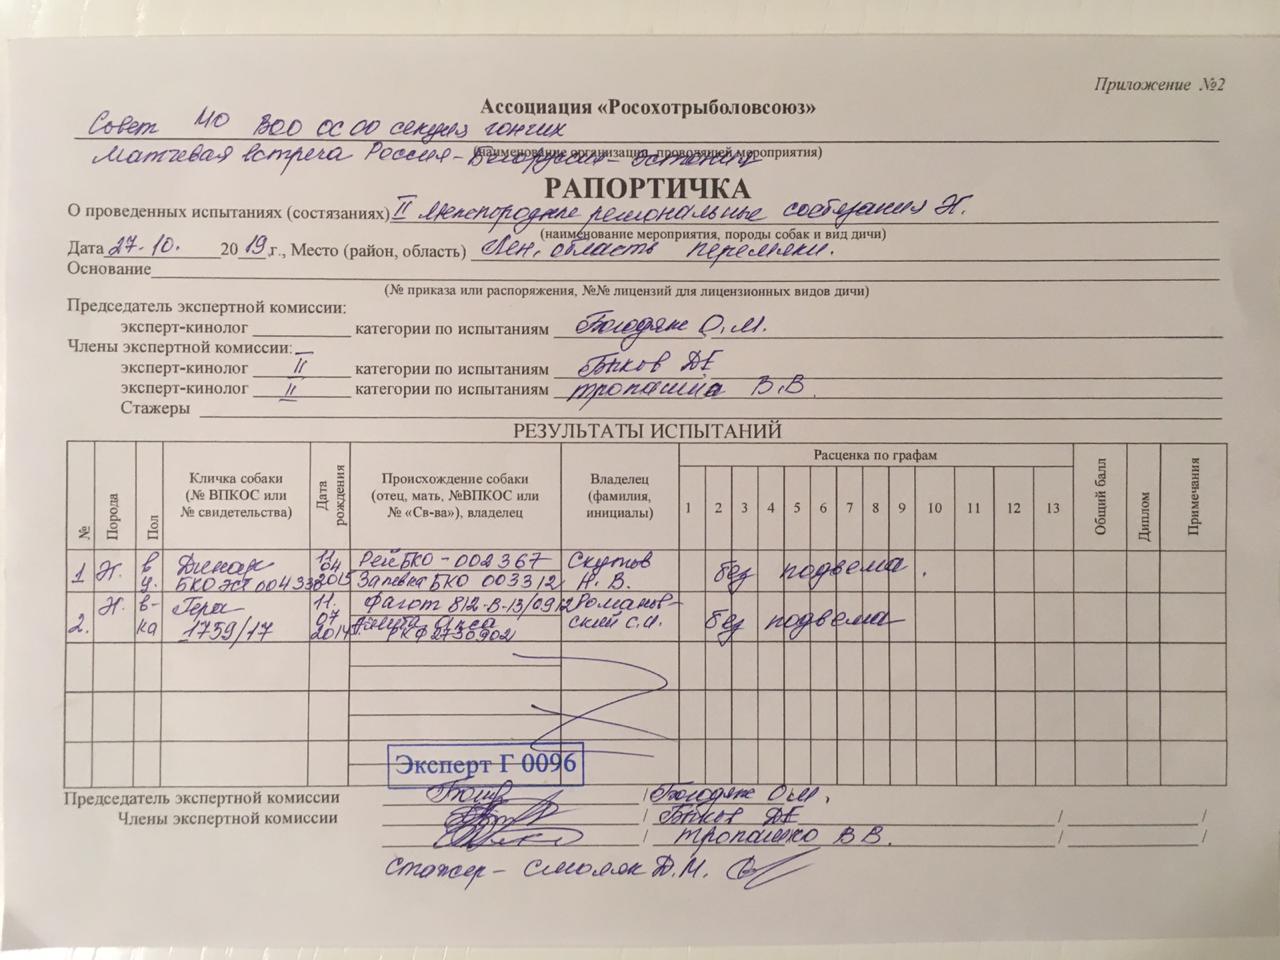 Приложение №2
Ассоциация «Росохотрыболовсоюз»
Совет МО ВОО ОСОО секция гончих
(наименование организации, проводящей мероприятия)
Матчевая встреча Россия-Белоруссия-Эстония
РАПОРТИЧКА
О проведенных испытаниях (состязаниях) II Межпородные региональные состязания Н.
(наименование мероприятия, породы собак и вид дичи)
Дата 27.10. 2019 г., Место (район, область) Лен. область перемяки.
Основание
(№ приказа или распоряжения, №№ лицензий для лицензионных видов дичи)
Председатель экспертной комиссии:
эксперт-кинолог категории по испытаниям О.М.
Члены экспертной комиссии:
эксперт-кинолог II категории по испытаниям Быков Д.Е
эксперт-кинолог II категории по испытаниям В.В.
Стажеры
РЕЗУЛЬТАТЫ ИСПЫТАНИЙ
№ Порода Пол Кличка собаки (№ ВПКОС или № свидетельства) Дата рождения Происхождение собаки (отец, мать, №ВПКОС или № «Св-ва»), владелец Владелец (фамилия, инициалы) Расценка по графам Общий балл Диплом Примечания
1 2 3 4 5 6 7 8 9 10 11 12 13
1 в 11. Рей БКО-002367 без подъема.
04 2015 Запевка БКО 003312 В.
2. в-ка Гера 11. Фагот 812-В-13/0912 Романовский С.И. без подъема
1759/17 07 РКФ 2730902
Эксперт Г 0096
Председатель экспертной комиссии / О.М.
Члены экспертной комиссии / Быков Д.Е / /
/ Тропашко В.В. / /
Стажер - Смоляк Д.М.